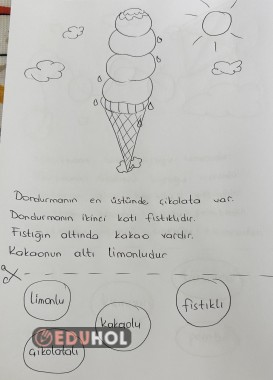 Dondurmanın en üstünde çikolata var.
Dondurmanın ikinci katı fıstıklıdır.
Fıstığın altında kakao vardır.
Kakaonun altı limonludur
limonlu
fıstıklı
kakaolu
EDUHOL
çikolatalı